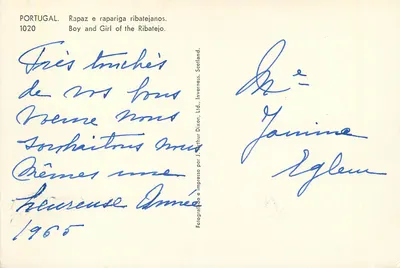 PORTUGAL. Rapaz e rapariga ribatejanos.
1020 Boy and Girl of the Ribatejo.
Très touchés
de vos bons
voeux nous
souhaitons nous
mêmes une
heureuse Année
1965
Mᵉ
Janine
Eglem
Fotografado e Impresso por J. Arthur Dixon, Ltd., Inverness, Scotland.